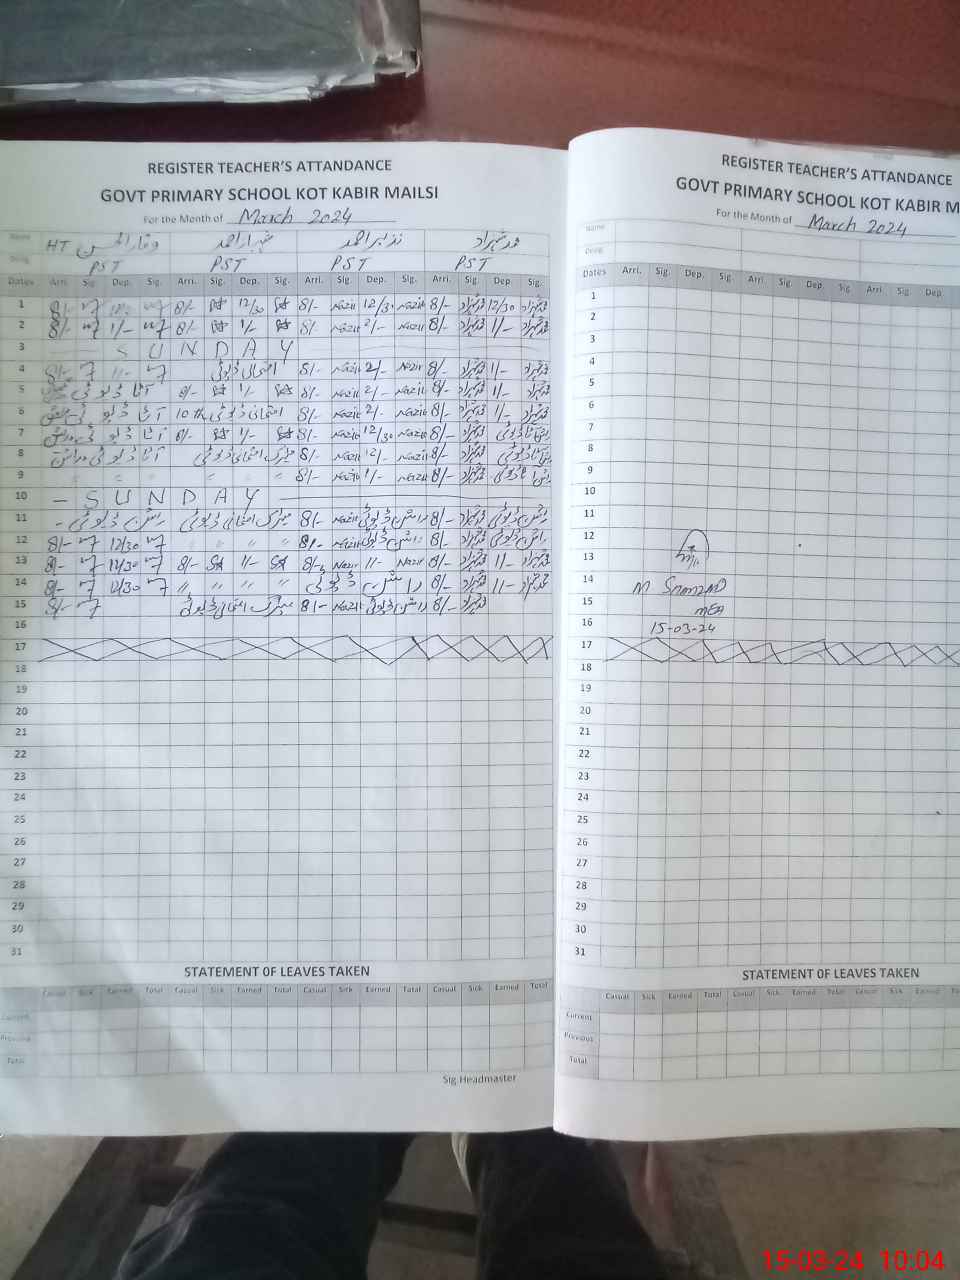 REGISTER TEACHER'S ATTANDANCE
GOVT PRIMARY SCHOOL KOT KABIR MAILSI
For the Month of March 2024
Name HT وقار الحسن شہباز احمد نذیر احمد محمد شہزاد
Desig. PST PST PST PST
Dates Arri. Sig. Dep. Sig. Arri. Sig. Dep. Sig. Arri. Sig. Dep. Sig. Arri. Sig. Dep. Sig.
1 8/- 8/- 12/30 8/- Nazir 12/30 Nazir 8/- شہزاد 12/30 شہزاد
2 8/- 1/- 8/- 1/- 8/- Nazir 2/- Nazir 8/- شہزاد 1/- شہزاد
3 SUNDAY
4 8/- 1/- امتحانی ڈیوٹی 8/- Nazir 2/- Nazir 8/- شہزاد 1/- شہزاد
5 آٹا ڈیوٹی 8/- 1/- 8/- Nazir 2/- Nazir 8/- شہزاد 1/- شہزاد
6 آٹا ڈیوٹی 10th امتحانی ڈیوٹی 8/- Nazir 2/- Nazir 8/- شہزاد 1/- شہزاد
7 آٹا ڈیوٹی 8/- 1/- 8/- Nazir 12/30 Nazir 8/- شہزاد
8 آٹا ڈیوٹی میٹرک امتحانی ڈیوٹی 8/- Nazir 12/- Nazir 8/- شہزاد
9 " " " " 8/- Nazir 1/- Nazir 8/- شہزاد
10 - SUNDAY
11 راشن ڈیوٹی - میٹرک امتحانی ڈیوٹی 8/- Nazir راشن ڈیوٹی 8/- شہزاد راشن ڈیوٹی
12 8/- 12/30 " " " " 8/- Nazir راشن ڈیوٹی 8/- شہزاد راشن ڈیوٹی
13 8/- 12/30 8/- 1/- 8/- Nazir 1/- Nazir 8/- شہزاد 1/- شہزاد
14 8/- 12/30 " " " " راشن ڈیوٹی 8/- شہزاد 1/- شہزاد
15 8/- میٹرک امتحانی ڈیوٹی 8/- Nazir راشن ڈیوٹی 8/- شہزاد
16
17
18
19
20
21
22
23
24
25
26
27
28
29
30
31
STATEMENT OF LEAVES TAKEN
Casual Sick Earned Total Casual Sick Earned Total Casual Sick Earned Total Casual Sick Earned Total
Current
Previous
Total
Sig Headmaster
REGISTER TEACHER'S ATTANDANCE
GOVT PRIMARY SCHOOL KOT KABIR M
For the Month of March 2024
Name
Desig.
Dates Arri. Sig. Dep. Sig. Arri. Sig. Dep. Sig. Arri. Sig. Dep.
1
2
3
4
5
6
7
8
9
10
11
12
13
14 M
15 MEA
16 15-03-24
17
18
19
20
21
22
23
24
25
26
27
28
29
30
31
STATEMENT OF LEAVES TAKEN
Casual Sick Earned Total Casual Sick Earned Total Casual Sick Earned
Current
Previous
Total
15-03-24 10:04